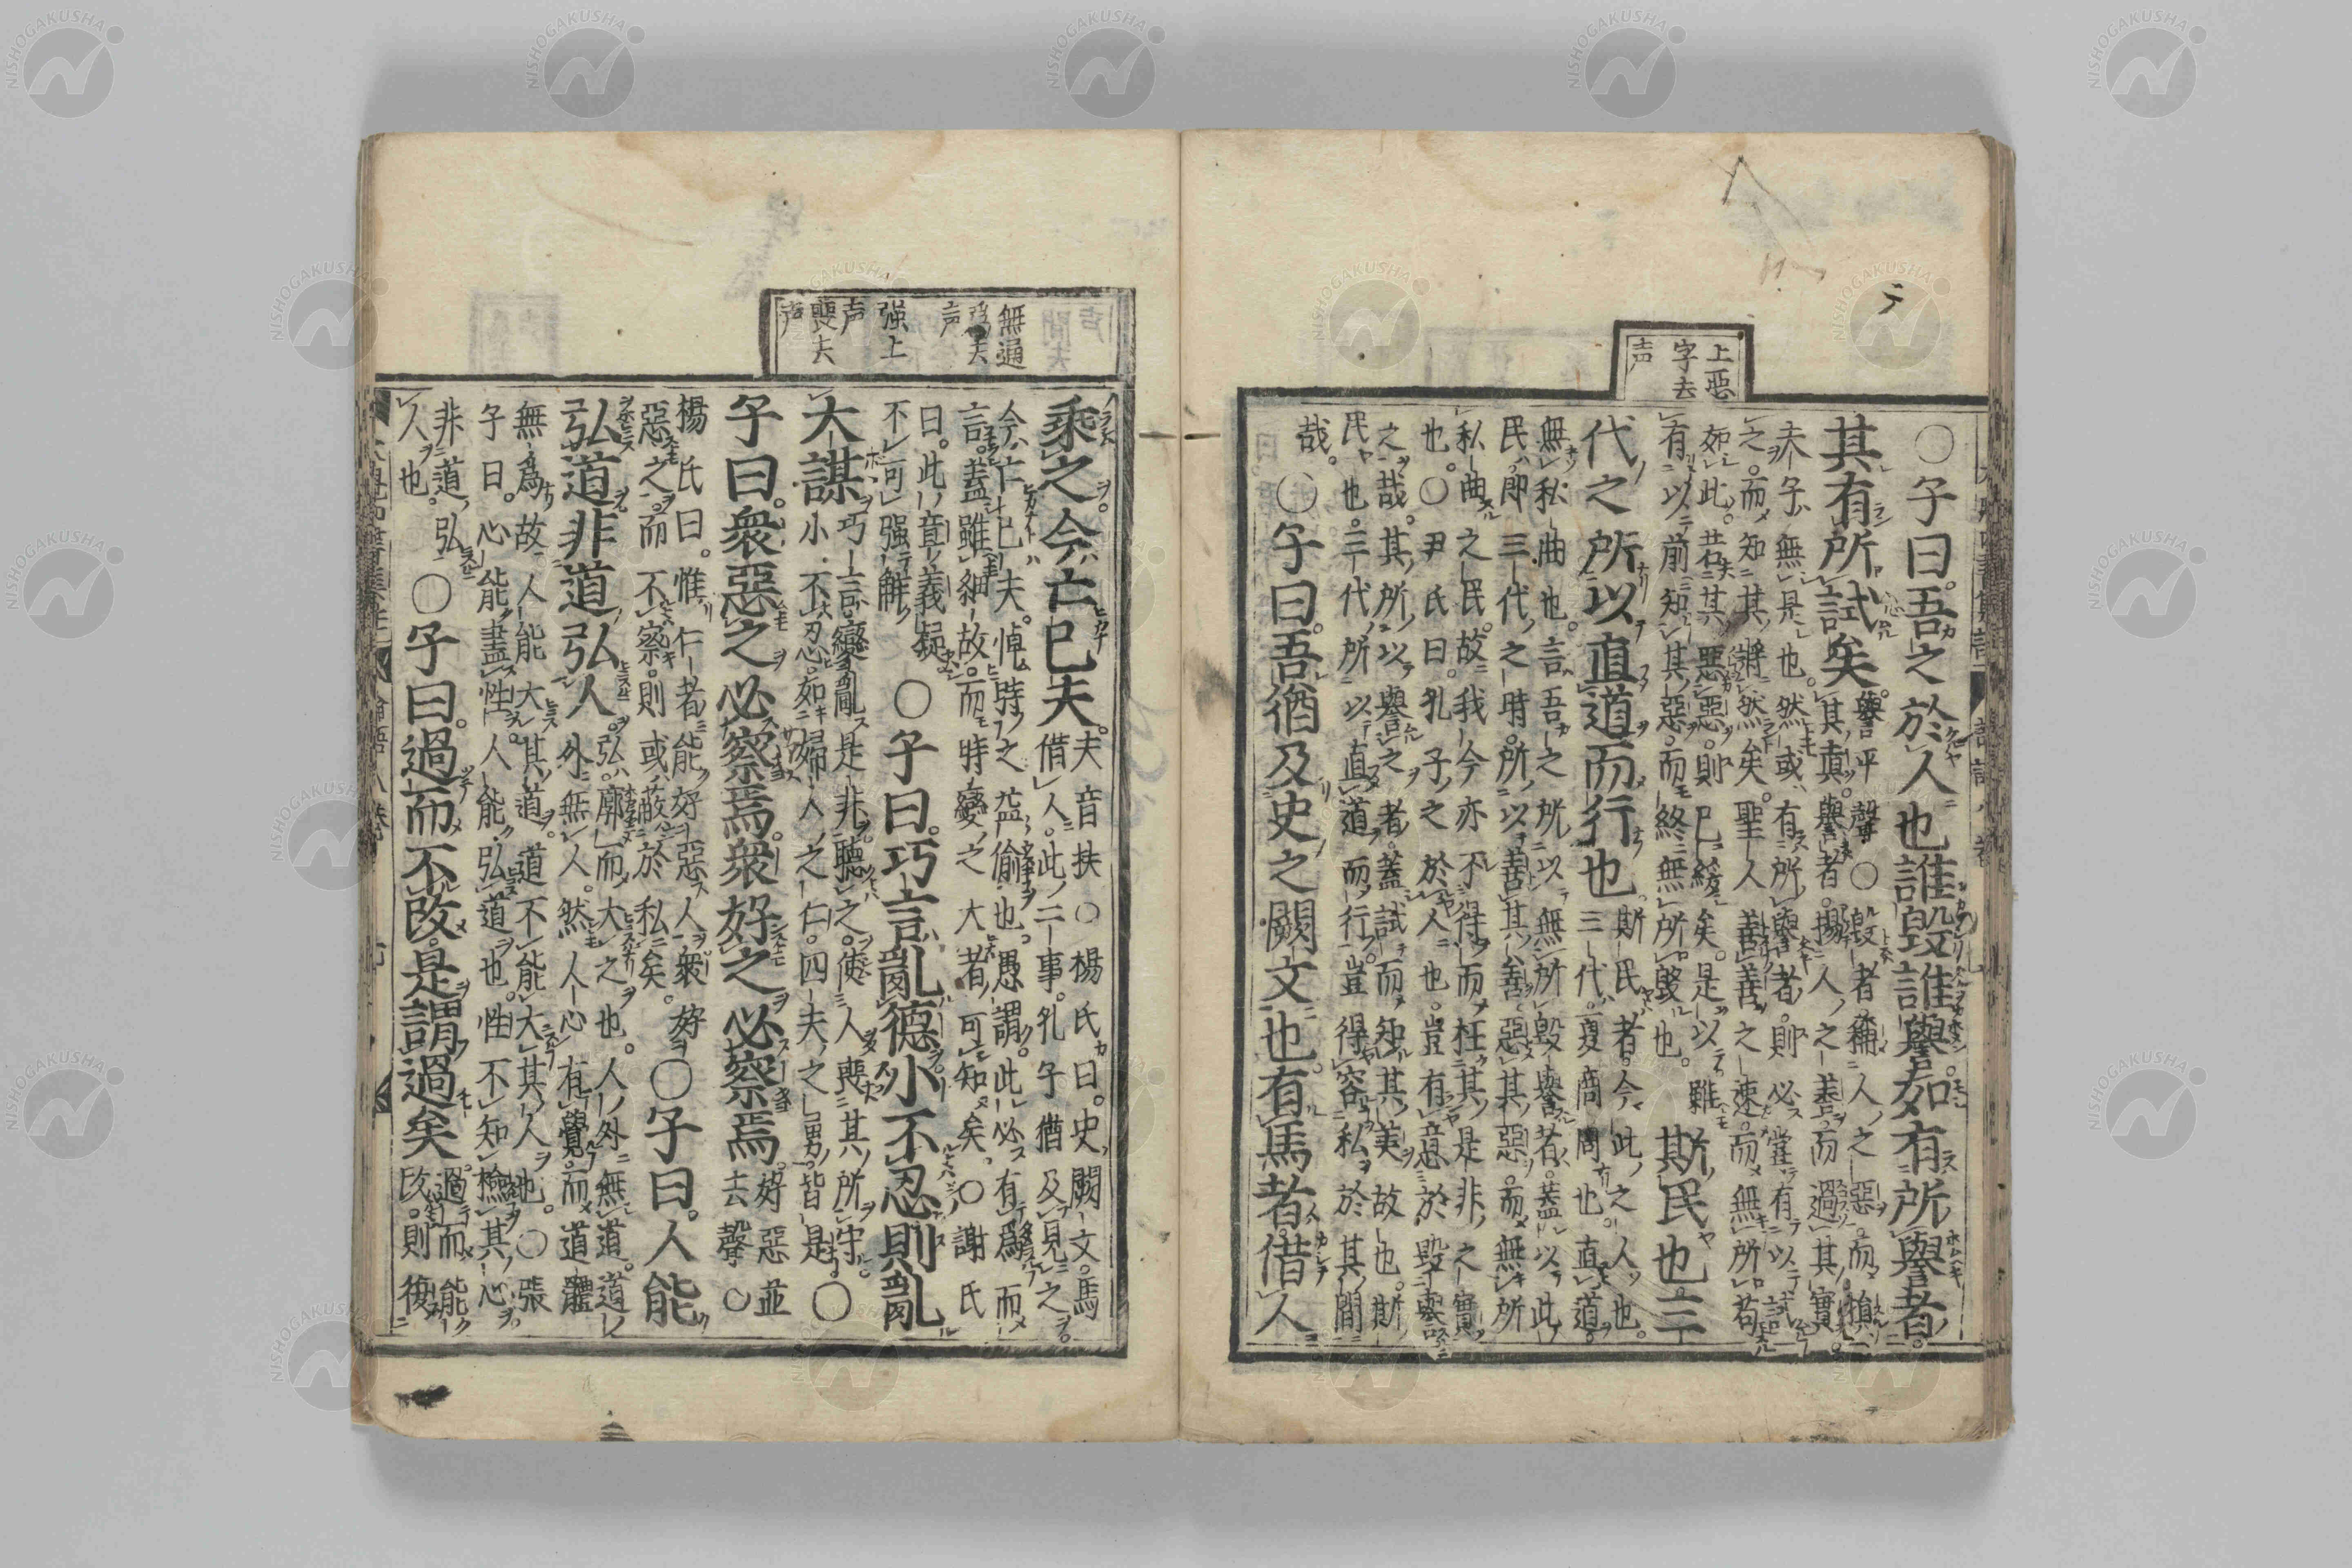 上惡
字去
声
○子曰。吾之於人也誰毀誰譽如有所譽者。
其有所試矣。
譽平聲○毀者稱人之惡。而損
其真。譽者。揚人之善。而過其實。
夫子。無是也。然或有所譽者。則必嘗有以試
之。而知其將然矣。聖人善善之速。而無所苟
如此。若其惡惡。則已緩矣。是以雖
有以前知其惡。而終無所毀也。
斯民也三
代之所以直道而行也
斯民者。今此之人也。
三代。夏商周也。直道。
無私曲也。言吾之所以無所毀譽者。蓋以此
民。即三代之時。所以善其善。惡其惡。而無所
私曲之民。故我今亦不得而枉其是非之實
也。○尹氏曰。孔子之於人也。豈有意於毀譽
之哉。其所以譽之者。蓋試而知其美故也。斯
民也。三代所以直道而行。豈得容私於其間
哉。○子曰。吾猶及史之闕文也。有馬者。借人
無通
為去
声
强上
声
喪去
声
乘之今亡已夫。
夫音扶○楊氏曰。史闕文。馬
借人。此二事。孔子猶及見之。
今亡已夫。悼時之益偷也。愚謂。此必有爲而
言。蓋雖細故。而時變之大者。可知矣。○謝氏
曰。此章義疑
不可强解
○子曰。巧言亂德小不忍則亂
大謀
巧言變亂是非。聽之。使人喪其所守。
小不忍。如婦人之仁。匹夫之勇。皆是。○
子曰。衆惡之必察焉。衆好之必察焉。
好惡並
去聲○
楊氏曰。惟仁者能好惡人。衆好
惡之。而不察。則或蔽於私矣。
○子曰。人能
弘道非道弘人。
弘。廓而大之也。人外無道。道
外無人。然人心有覺。而道體
無爲故人能大其道。道不能大其人也。○張
子曰。心能盡性。人能弘道也。性不知檢其心。
非道弘
人也。
○子曰。過而不改。是謂過矣
過而能
改。則復